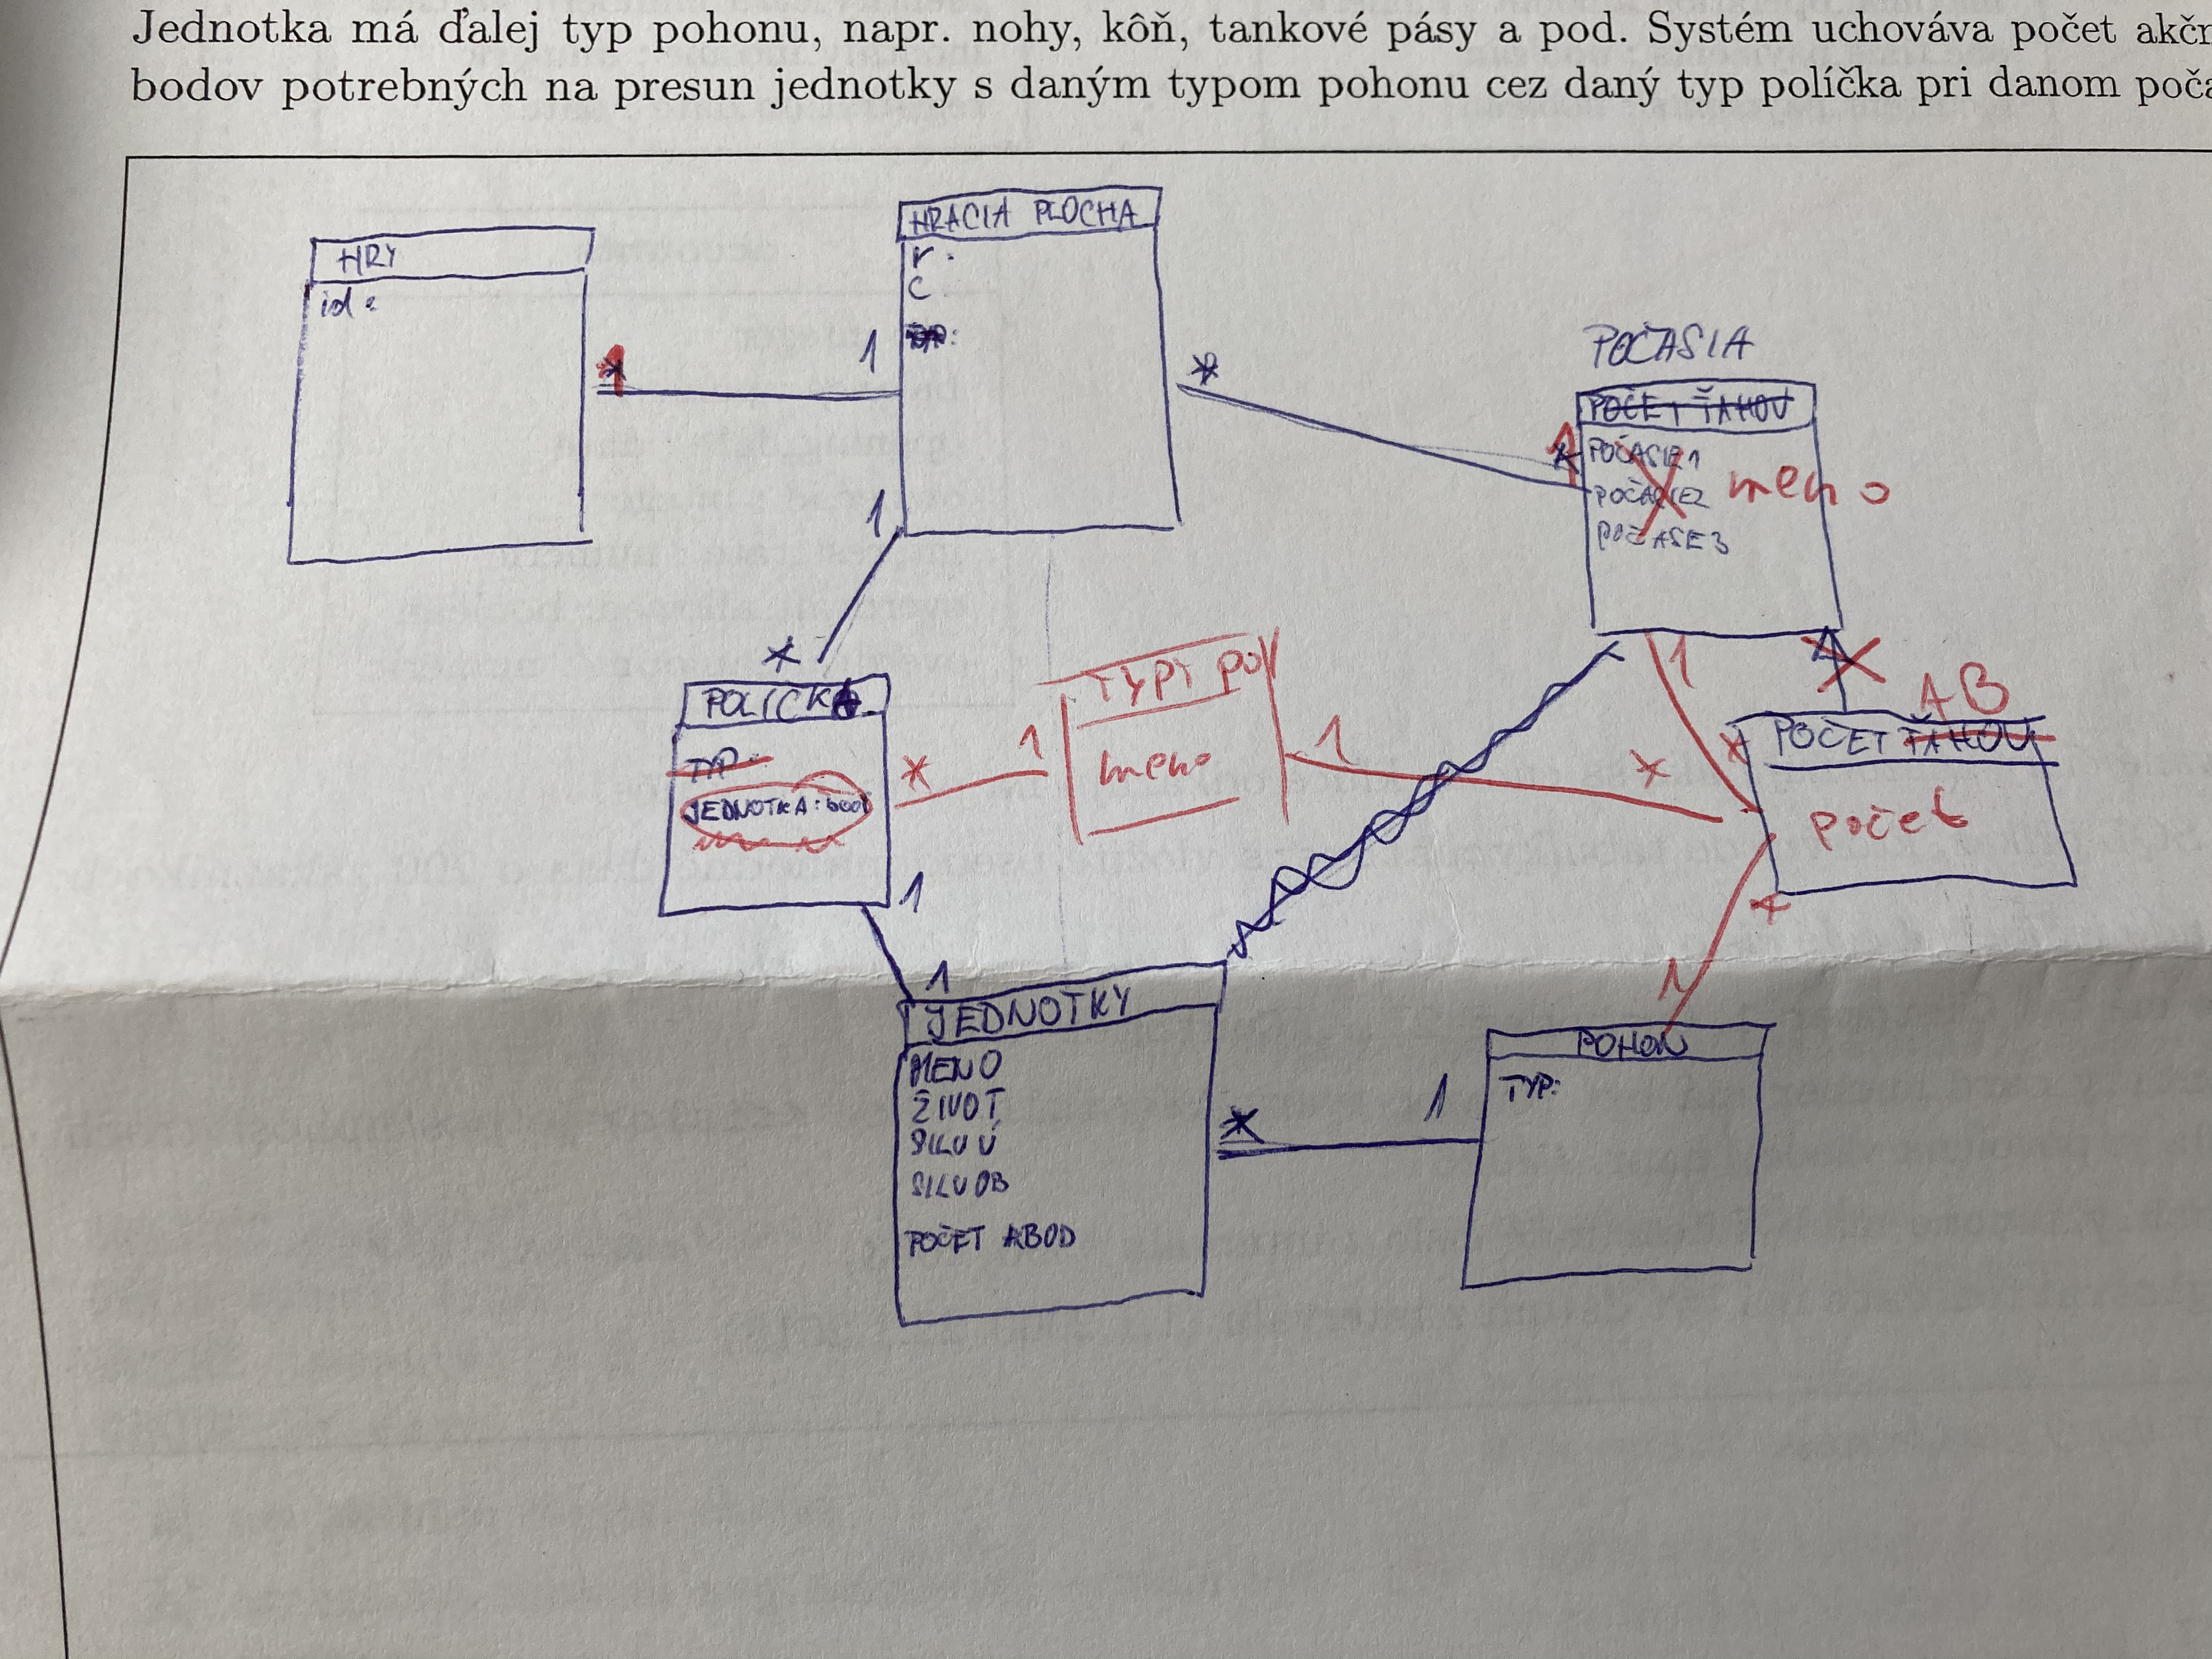 Jednotka má ďalej typ pohonu, napr. nohy, kôň, tankové pásy a pod. Systém uchováva počet akčn
bodov potrebných na presun jednotky s daným typom pohonu cez daný typ políčka pri danom poča
HRY
id:
1
1
HRACIA PLOCHA
r.
C
*
1
POČASIA
POČET ŤAHOV
1
POČASIE1
POČASIE2
POČASE3
meno
*
POLÍČKA
TYP:
JEDNOTKA: bool
*
1
TYPY POL
meno
1
*
1
*
AB
POČET ŤAHOV
počet
*
1
1
1
JEDNOTKY
MENO
ŽIVOT
SILU Ú
SILU OB
POČET ABOD
*
1
POHON
TYP: